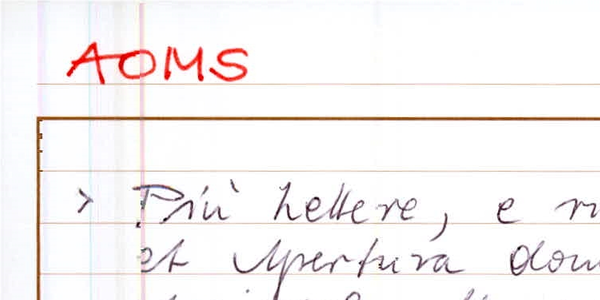 AOMS
> Più lettere, e
et Apertura